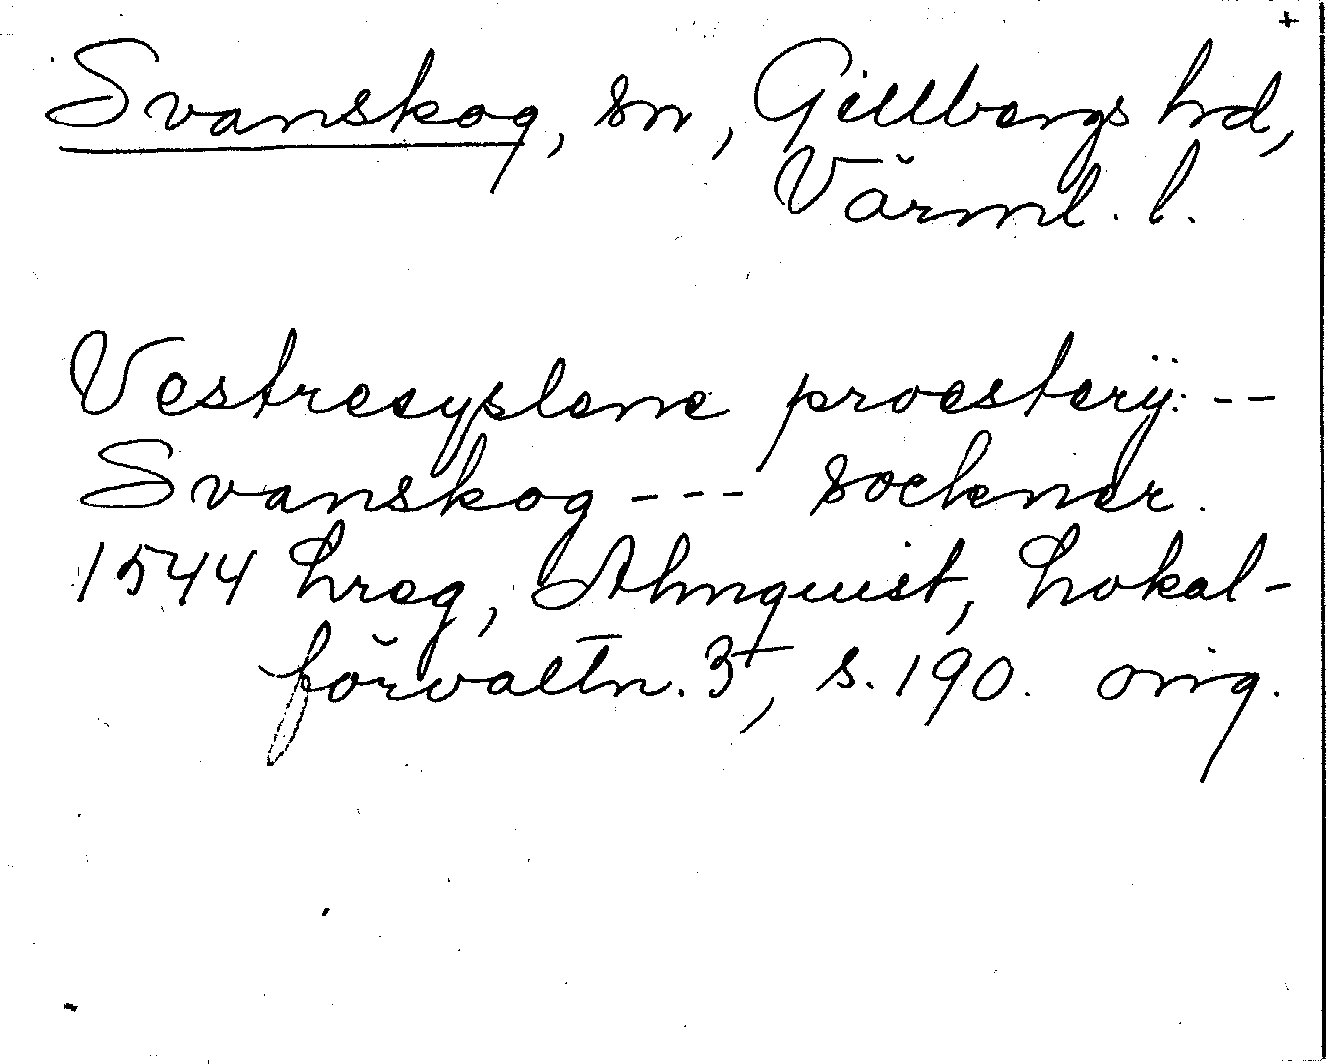 +
Svanskog, sn, Gillbergs hd,
Värml. l.
Vestresyslene proesterij: --
Svanskog --- sockner.
1544 hreg, Almquist, Lokal-
förvaltn. 3, s. 190. orig.